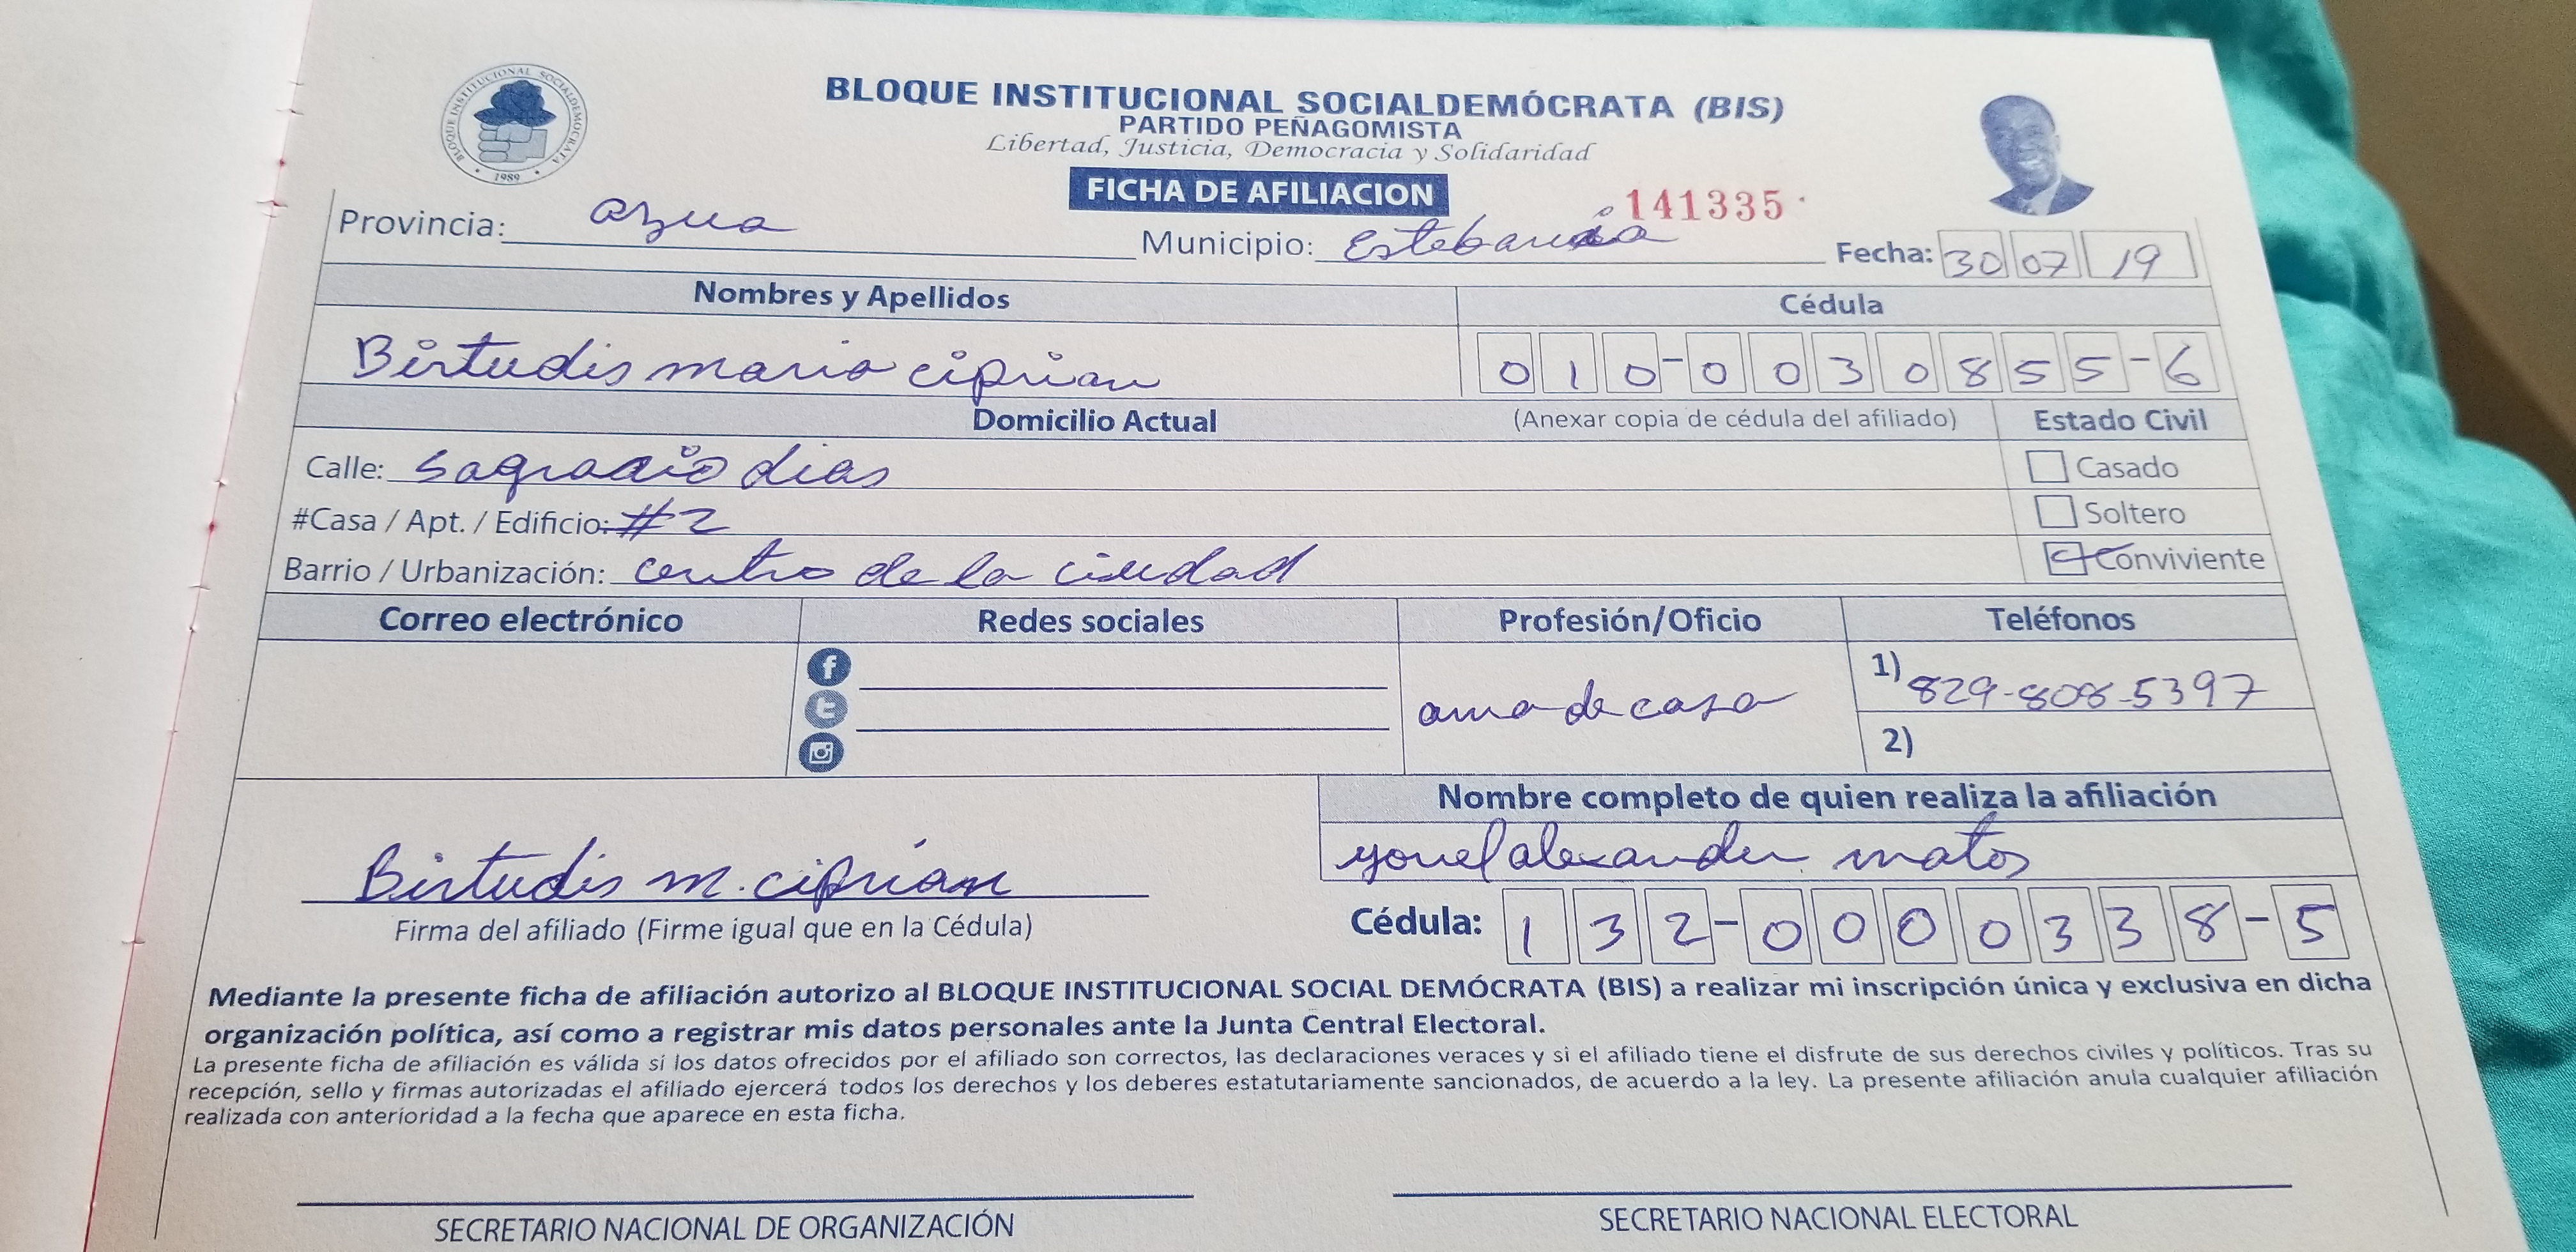 BLOQUE INSTITUCIONAL SOCIALDEMOCRATA
1989
BLOQUE INSTITUCIONAL SOCIALDEMÓCRATA (BIS)
PARTIDO PEÑAGOMISTA
Libertad, Justicia, Democracia y Solidaridad
FICHA DE AFILIACION
141335
Provincia: azua Municipio: Estebania Fecha: 30 07 19
Nombres y Apellidos Cédula
Birtudis maria ciprian 010-0030855-6
Domicilio Actual (Anexar copia de cédula del afiliado) Estado Civil
Calle: sagrario dias Casado
#Casa / Apt. / Edificio: #2 Soltero
Barrio / Urbanización: centro de la ciudad Conviviente
Correo electrónico Redes sociales Profesión/Oficio Teléfonos
ama de casa 1) 829-808-5397
2)
Nombre completo de quien realiza la afiliación
yonel alexander matos
Birtudis m. ciprian
Firma del afiliado (Firme igual que en la Cédula) Cédula: 132-0000338-5
Mediante la presente ficha de afiliación autorizo al BLOQUE INSTITUCIONAL SOCIAL DEMÓCRATA (BIS) a realizar mi inscripción única y exclusiva en dicha
organización política, así como a registrar mis datos personales ante la Junta Central Electoral.
La presente ficha de afiliación es válida si los datos ofrecidos por el afiliado son correctos, las declaraciones veraces y si el afiliado tiene el disfrute de sus derechos civiles y políticos. Tras su
recepción, sello y firmas autorizadas el afiliado ejercerá todos los derechos y los deberes estatutariamente sancionados, de acuerdo a la ley. La presente afiliación anula cualquier afiliación
realizada con anterioridad a la fecha que aparece en esta ficha.
SECRETARIO NACIONAL DE ORGANIZACIÓN SECRETARIO NACIONAL ELECTORAL